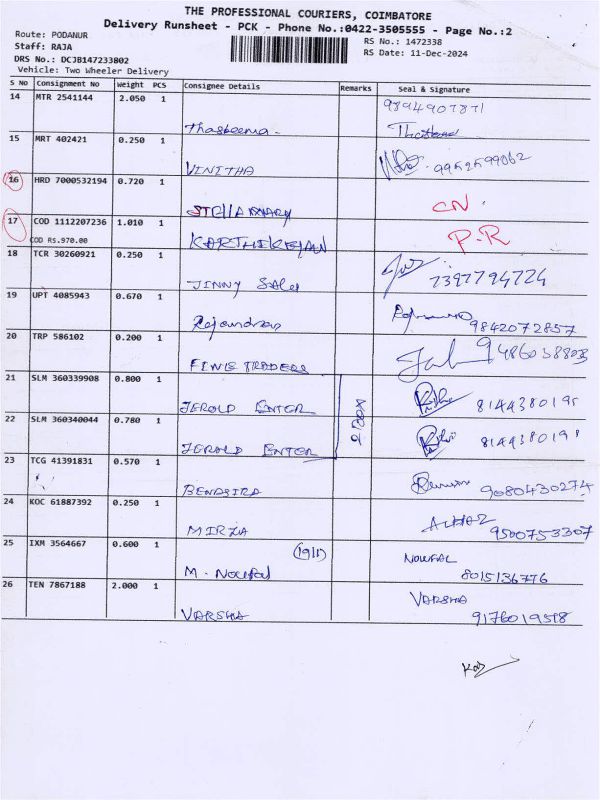 THE PROFESSIONAL COURIERS, COIMBATORE
Delivery Runsheet - PCK - Phone No.:0422-3505555 - Page No.:2
Route: PODANUR
Staff: RAJA
DRS No.: DCJB147233802
Vehicle: Two Wheeler Delivery
RS No.: 1472338
RS Date: 11-Dec-2024
S No Consignment No Weight PCS Consignee Details Remarks Seal & Signature
14 MTR 2541144 2.050 1 Thasleema
15 MRT 402421 0.250 1 VINITHA 9952599062
16 HRD 7000532194 0.720 1 STELLA MARY CN.
17 COD 1112207236 1.010 1 KARTHIKEYAN P.R
COD RS.970.00
18 TCR 30260921 0.250 1 JINNY Sales 7397794724
19 UPT 4085943 0.670 1 Rajendran 9842072857
20 TRP 586102 0.200 1 FINIS TRADERS
21 SLM 360339908 0.800 1 JEROLD ENTER
22 SLM 360340044 0.780 1 JEROLD ENTER 2 BOX
23 TCG 41391831 0.570 1 9080430274
24 KOC 61887392 0.250 1 MIRZA 9500753307
25 IXM 3564667 0.600 1 M. Noufal NOUFAL 8015136776
26 TEN 7867188 2.000 1 VARSHA VARSHA